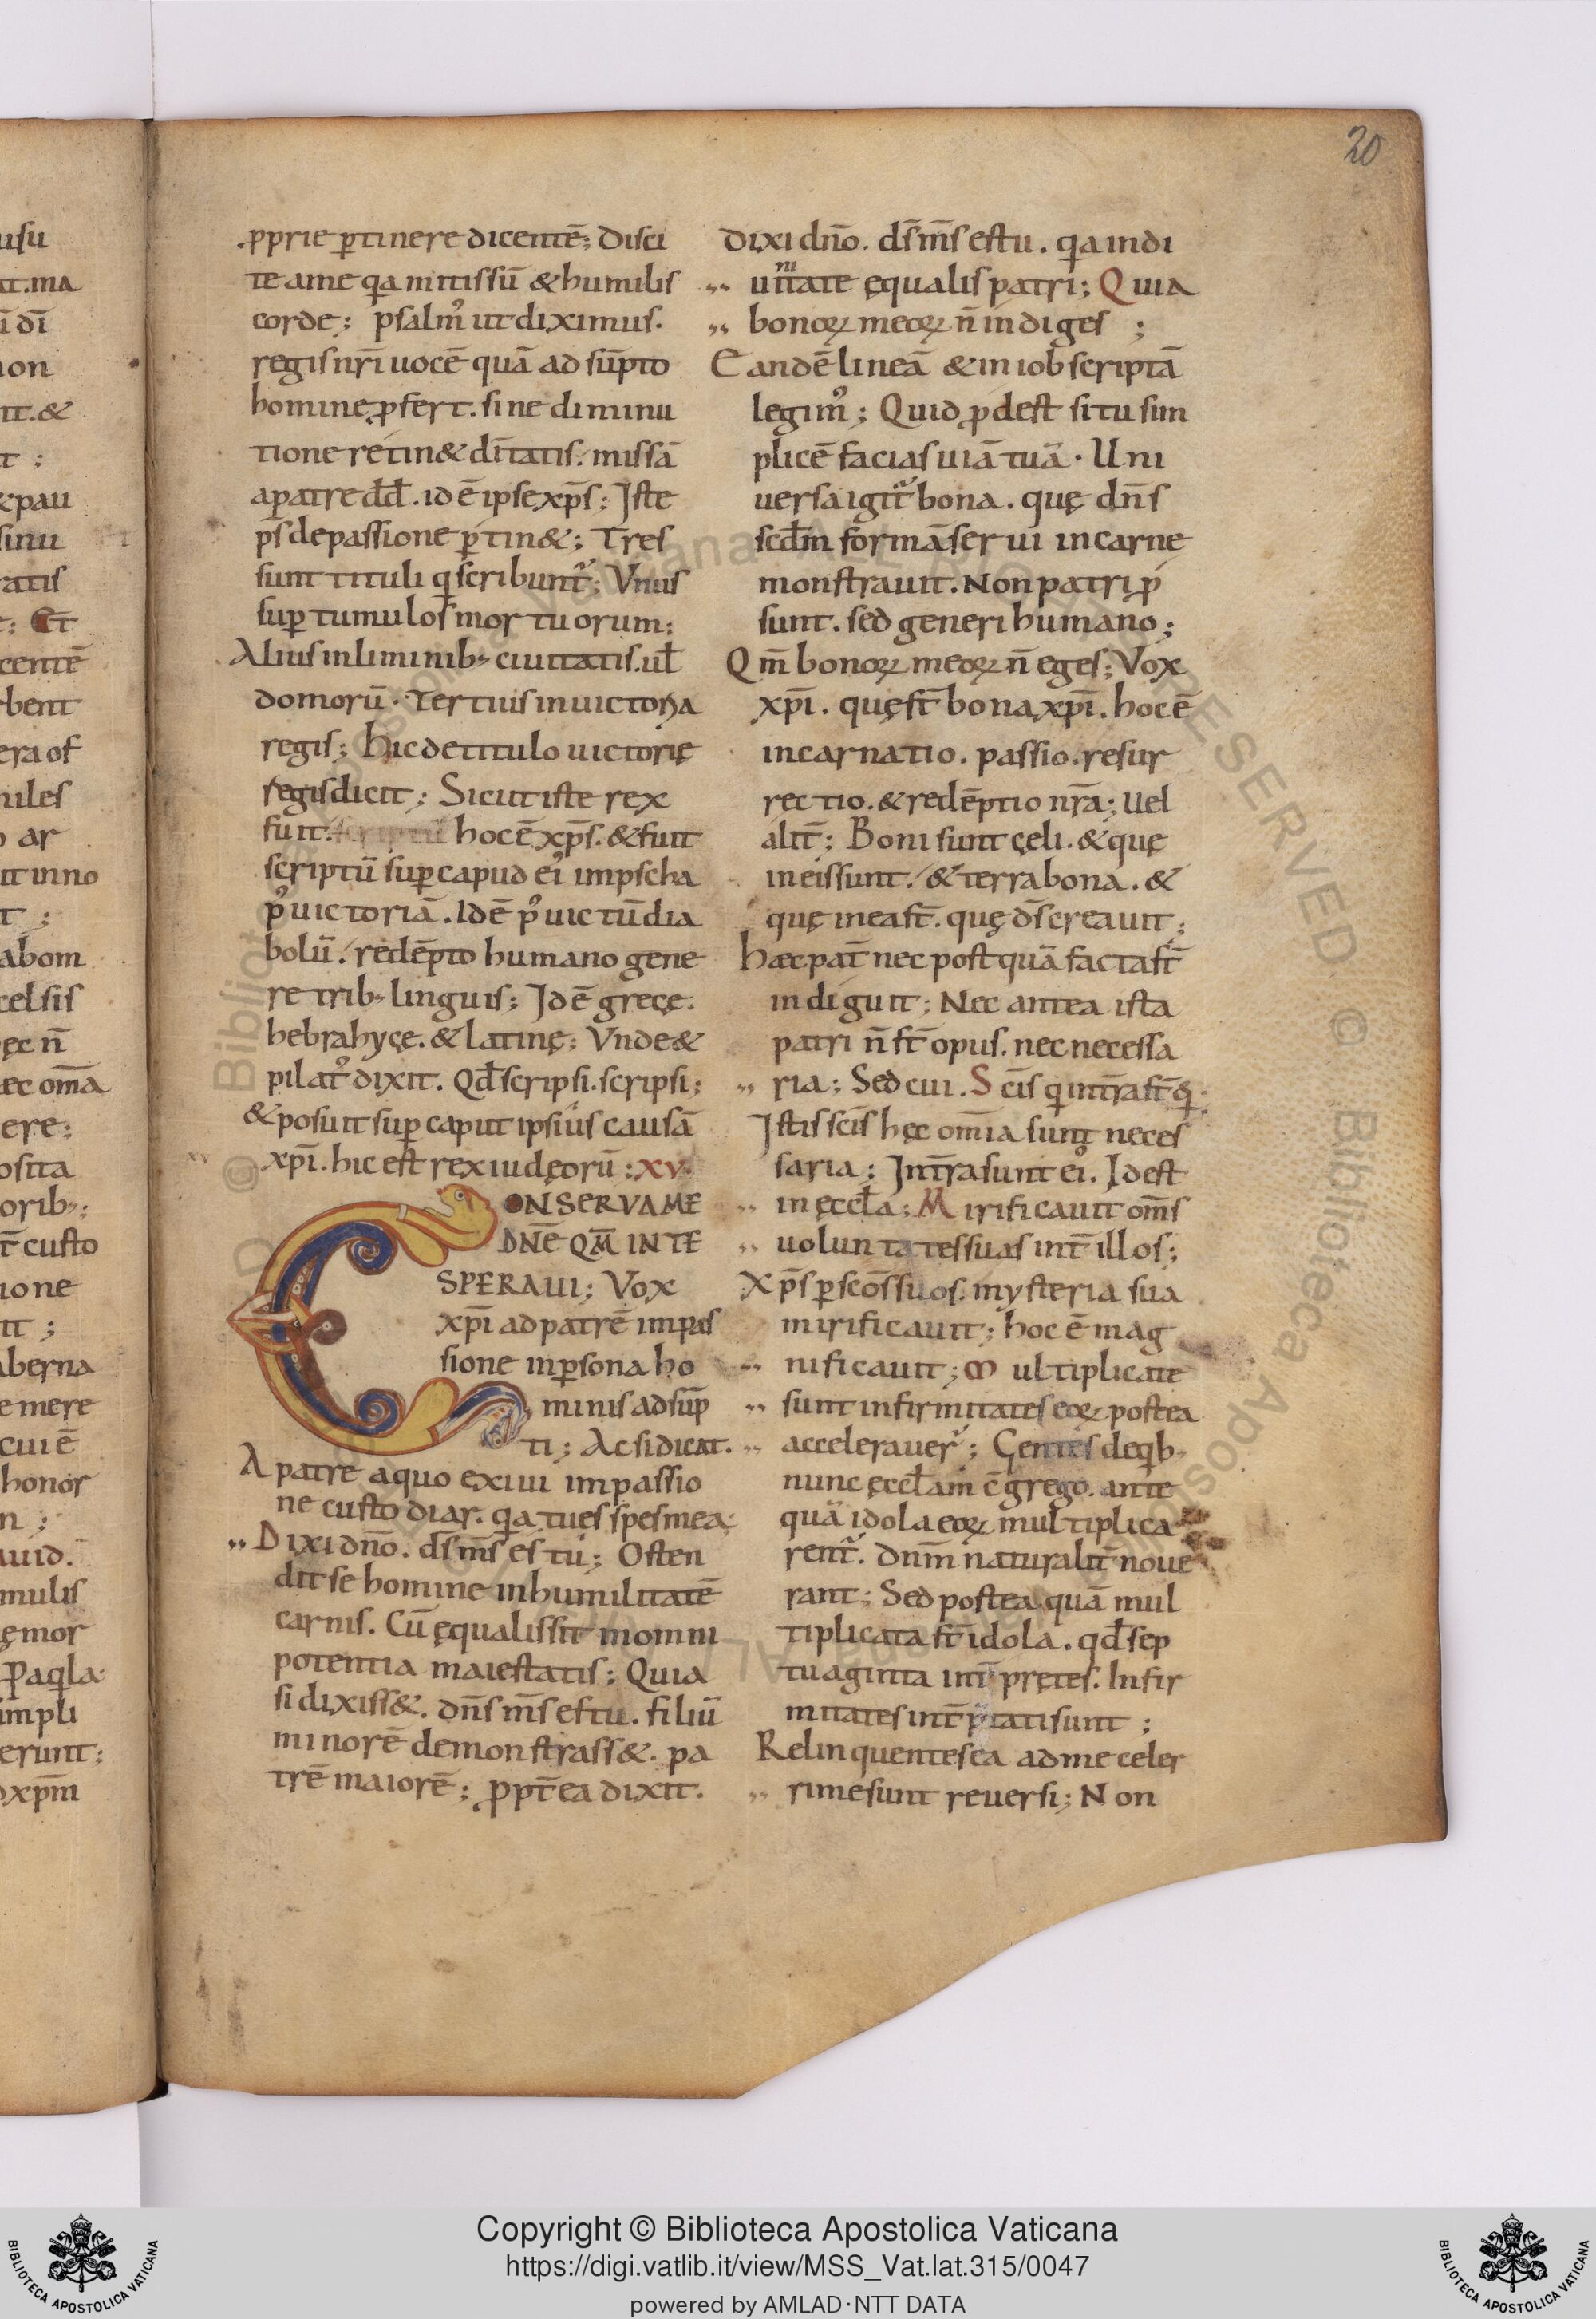 20
usu
it.ma
ī dī
non
it.&
t ;
&pau
sinu
ratis
e; Et̄
centē
rbent
era of
niles
o ar
it inno
t ;
abom
celsis
ęc n̄
ec om̄a
ere:
osita
orib;:
t̄ custo
ione
it ;
aberna
e mere
cui ē
honor
n ;
auid.
mulis
ęmor
Paq̄la
impli
erunt;
dxpm̄
ꝓprie ꝑtinere dicentē; Disci
te a me q̄a mitis sū & humilis
corde; psalmꝰ ut diximus.
regis nr̄i uocē quā ad sūpto
homine ꝓfert. sine diminu
tione retin& dn̄itatis. missā
a patre dd̄. id ē ipse xp̄s; Iste
ps̄ de passione ꝑtin&; Tres
sunt tituli q̄ scribunt᷑; Vnus
suꝑ tumulos mortuorum;
Alius in liminib; ciuitatis. ul̄
domorū. Tertius in uictoria
regis; Hic de titulo uictorię
regis dicit; Sicut iste rex
fuit. scriptū hoc ē xp̄s. & fuit
scriptū suꝑ capud eiꝰ im pscha
pꝰ uictoriā. Id ē pꝰ uictū dia
bolū. redēpto humano gene
re trib; linguis; Id ē gręcę.
hebrahycę. & latinę; Vnde &
pilatꝰ dixit. Qd̄ scripsi. scripsi;
& posuit suꝑ caput ipsius causā
xp̄i. hic est rex iudęorū: xv.
CONSERVA ME
DNĒ QM̄ IN TE
SPERAUI; Vox
xp̄i ad patrē im pas
sione in ꝑsona ho
minis adsūp
ti; Ac si dicat.
A patre a quo exiui im passio
ne custodiar. q̄a tu es spes mea;
,, Dixi dn̄o. ds̄ ms̄ es tu; Osten
dit se homine in humilitatē
carnis. Cū ęqualis sit in omni
potentia maiestatis; Quia
si dixiss&. dn̄s ms̄ es tu. filiū
minorē demonstrass&. pa
trē maiorē; ꝓpt̄ea dixit.
Dixi dn̄o. ds̄ ms̄ es tu. q̄a in di
,, uinitate ęqualis patri; Quia
,, bonoꝝ meoꝝ n̄ indiges ;
Eandē lineā & in iob scriptā
legimꝰ; Quid ꝓdest si tu sim
plicē facias uiā tuā. Uni
uersa igit᷑ bona. quę dn̄s
scd̄m formā serui in carne
monstrauit. Non patri ꝓ
sunt. sed generi humano;
Qm̄ bonoꝝ meoꝝ n̄ eges; Vox
xp̄i. quę st̄ bona xp̄i. hoc ē
incarnatio. passio. resur
rectio. & redēptio nr̄a; Uel
alit̄; Boni sunt cęli. & quę
in eis sunt. & terra bona. &
quę in ea st̄. quę ds̄ creauit;
Hæc pat̄ nec postquā facta st̄
indiguit; Nec antea ista
patri n̄ st̄ opus. nec necessa
,, ria; Sed cui. Scīs q̄ in t̄ra st̄ ꝗ;
Istis scīs hęc om̄ia sunt neces
saria; In t̄ra sunt eiꝰ. Id est
,, in ęccl̄a; Mirificauit om̄s
,, uoluntates suas int̄ illos;
Xp̄s ꝑ scōs suos. mysteria sua
mirificauit; hoc ē mag
,, nificauit; Multiplicate
,, sunt infirmitates eoꝝ postea
,, accelerauer᷑; Gentes de q̄b;
nunc ęccl̄am c̄grego. ante
quā idola eoꝝ multiplica
rent᷑. Dnm̄ naturalit̄ noue
rant; Sed postea quā mul
tiplicata st̄ idola. qd̄ sep
tuaginta int̄pretes. Infir
mitates int̄p̄tati sunt ;
Relinquentes ea ad me celer
,, rime sunt reuersi; Non
Copyright © Biblioteca Apostolica Vaticana
https://digi.vatlib.it/view/MSS_Vat.lat.315/0047
powered by AMLAD·NTT DATA
BIBLIOTECA APOSTOLICA VATICANA
BIBLIOTECA APOSTOLICA VATICANA